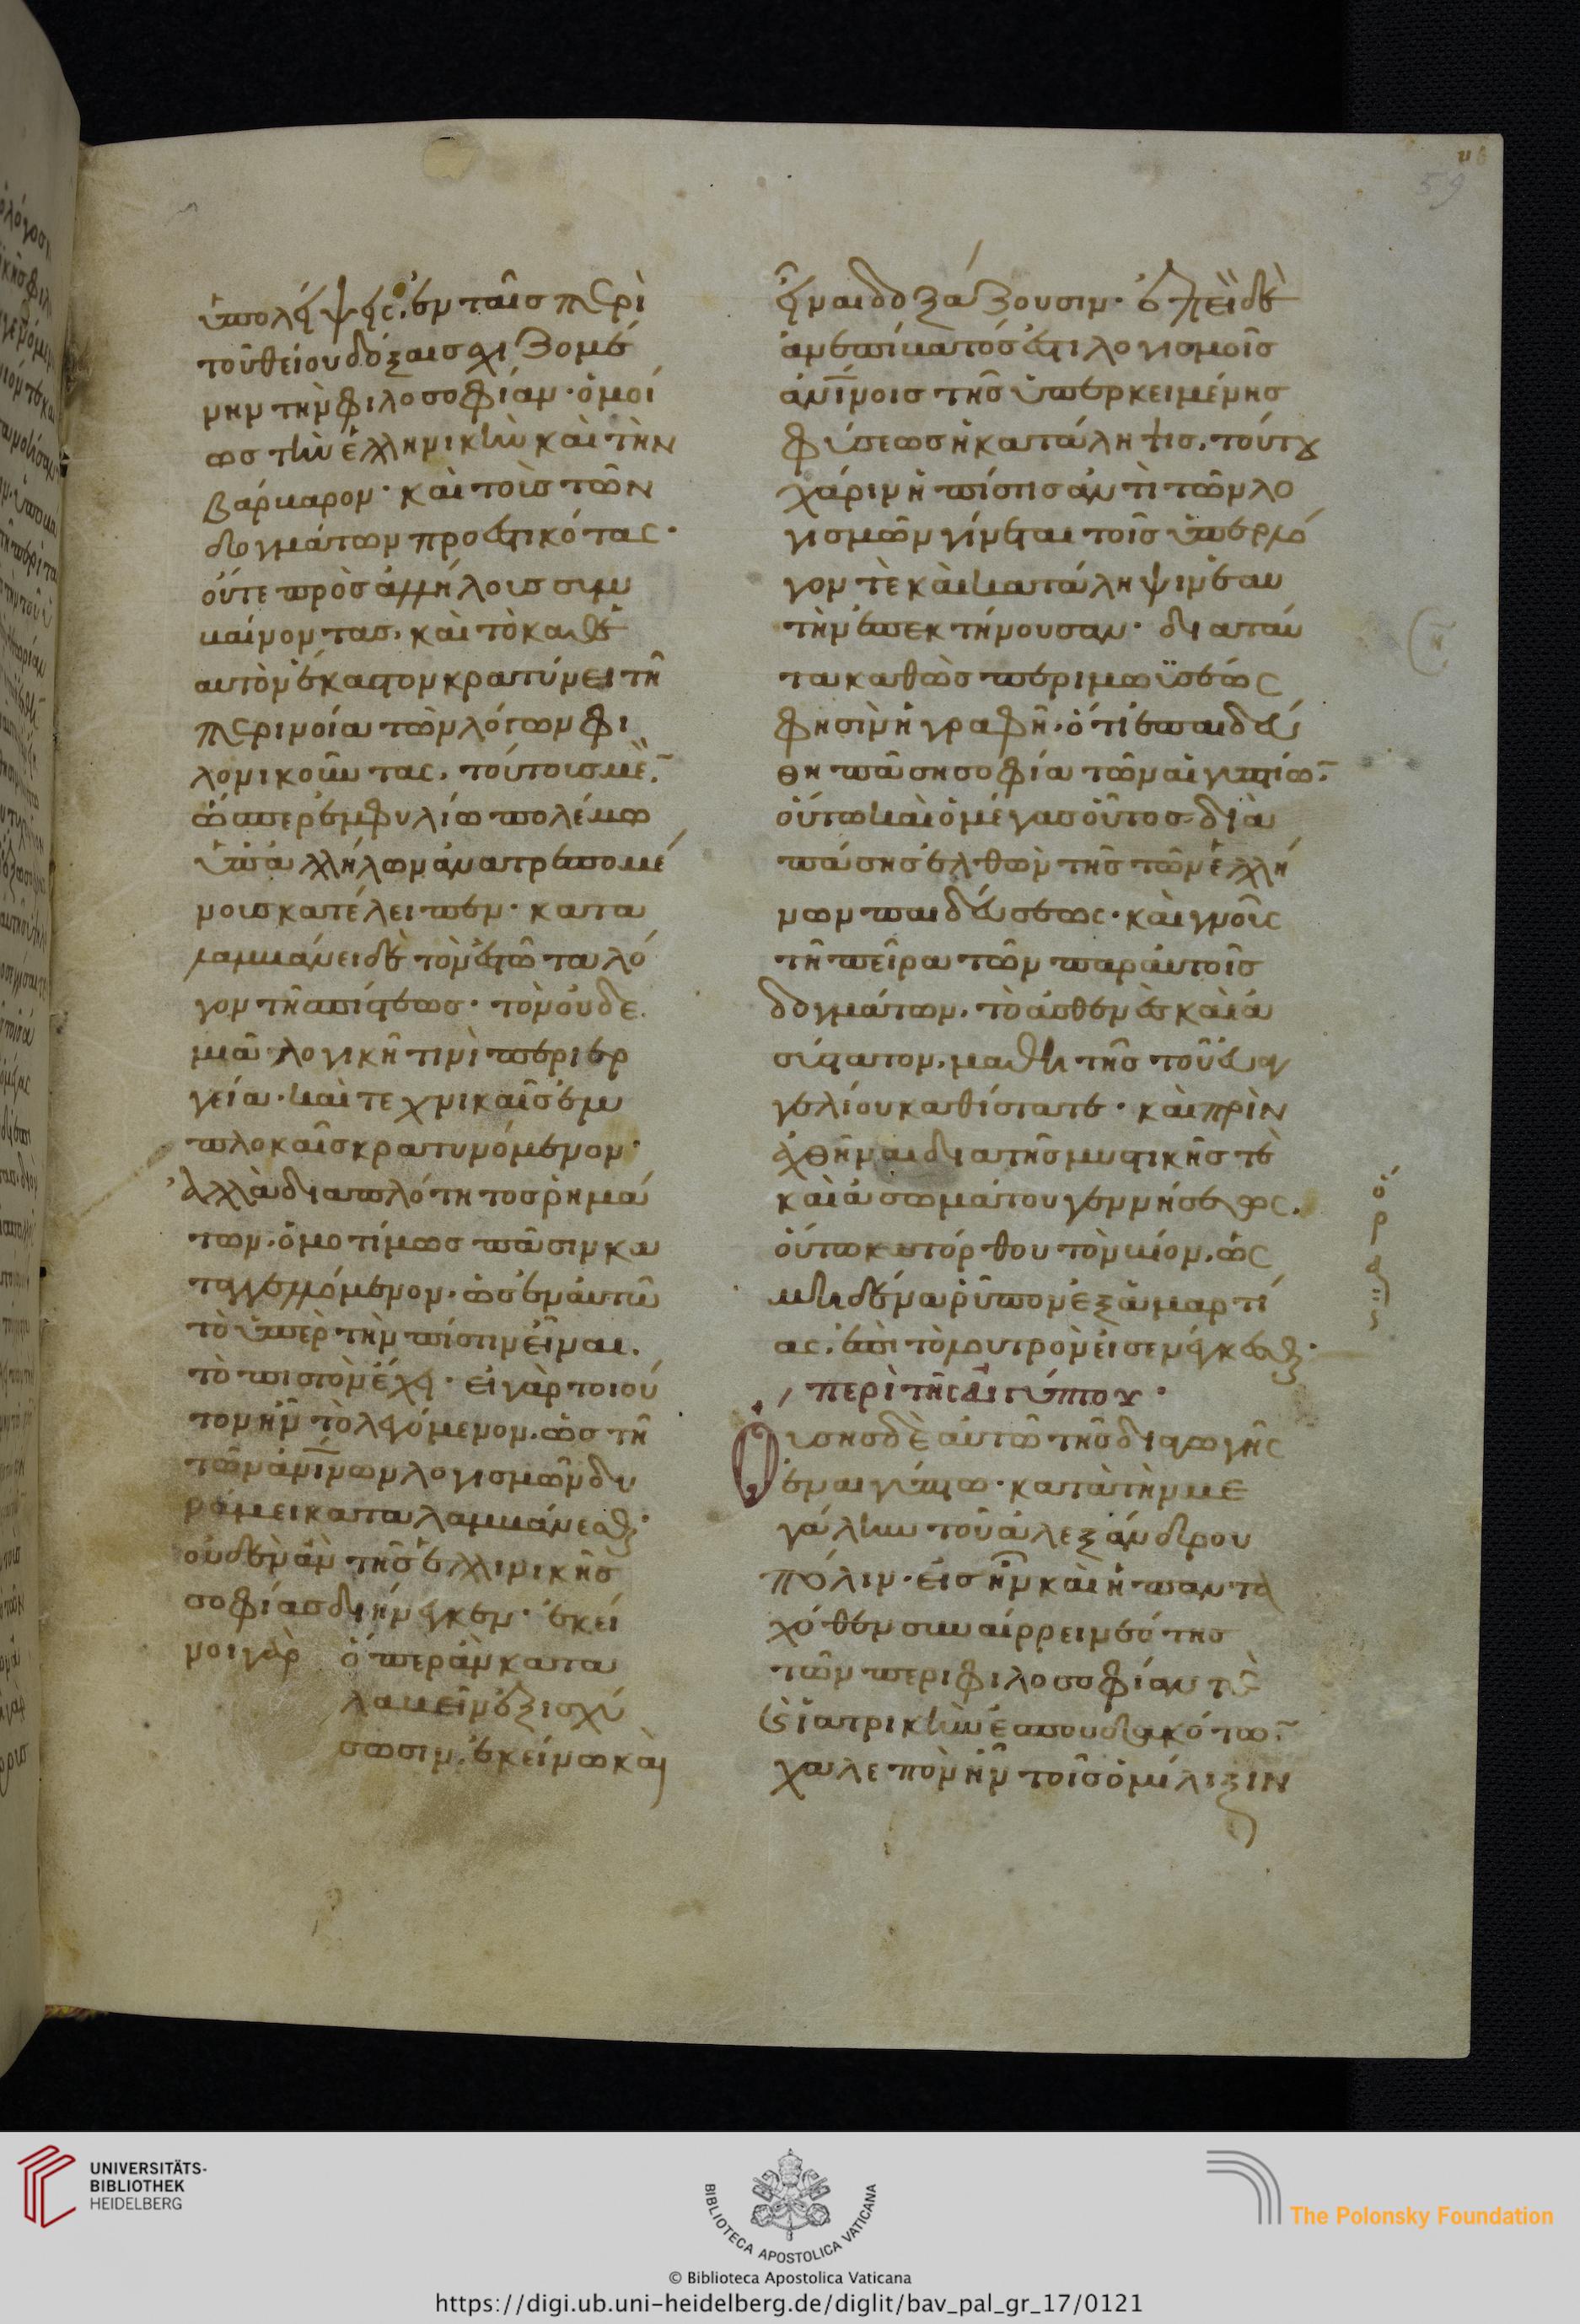 ὑπολήψεις ἐν ταῖς περὶ
τοῦ θείου δόξαις σχιζομέ
νην τὴν φιλοσοφίαν· ὁμοί
ως τὴν ἑλληνικὴν καὶ τὴν
βάρβαρον· καὶ τοῖς τῶν
δογμάτων προεστικότας·
οὔτε πρὸς ἀλλήλους συμ
βαίνοντας, καὶ τὸ καθ' ἑ
αυτὸν ἕκαστον κρατύνει τῆ
περινοία τῶν λόγων φι
λονικοῦντας, τούτοις μὲν
ὥσπερ ἐμφυλίω πολέμω
ὑπ' ἀλλήλων ἀνατρεπομέ
νοις κατέλειπεν· κατα
λαμβάνει δὲ τὸν ἑστῶτα λό
γον τῆς πίστεως· τὸν οὐδε
μιᾶ λογικῆ τινὶ περιερ
γεία· καὶ τεχνικαῖς ἐμ
πλοκαῖς κρατυνόμενον·
ἀλλὰ δι' ἁπλότητος ῥημά
των· ὁμοτίμως πᾶσιν κα
ταγγελλόμενον· ὡς ἐν αὐτῶ
τὸ ὑπὲρ τὴν πίστιν εἶναι.
τὸ πιστὸν ἔχει· εἰ γὰρ τοιοῦ
τον ἦν τὸ λεγόμενον. ὡς τῆ
τῶν ἀνίνων λογισμῶν δυ
νάμει καταλαμβάνεσθαι·
οὐδὲν ἂν τῆς ἑλλινικῆς
σοφίας διήνεγκεν· ἐκεῖ
νοι γὰρ ὅπερ ἂν κατα
λαβεῖν ἐξισχύ
σωσιν. ἐκείνω καὶ
εἶναι δοξάζουσιν· ἐπεὶ δὲ
ἀνεπίβατός ἐστι λογισμοῖς
ἀνίνοις τῆς ὑπερκειμένης
φύσεως ἡ κατάληψις. τούτου
χάριν ἡ πίστις ἀντὶ τῶν λο
γισμῶν γίνεται τοῖς ὑπὲρ λό
γον τὲ καὶ κατάληψιν ἑαυ
τὴν ἐπεκτήνουσαν· διὰ ταῦ
τα καθὼς περὶ μωϋσέως
φησὶν ἡ γραφὴ. ὅτι ἐπαιδεύ
θη πάση σοφία τῶν αἰγυπτίων
οὕτω καὶ ὁ μέγας οὗτος διὰ
πάσης ἐλθὼν τῆς τῶν ἑλλή
νων παιδεύσεως· καὶ γνοὺς
τῆ πείρα τῶν παρ' αὐτοῖς
δογμάτων. τὸ ἀσθενὲς καὶ ἀ
σύστατον. μαθητὴς τοῦ εὐαγ
γελίου καθίσταται· καὶ πρὶν
ἀχθῆναι διὰ τῆς μυστικῆς τὲ
καὶ ἀσωμάτου γεννήσεως.
οὕτω κατόρθου τὸν βίον. ὡς
μηδένα ῥύπον ἐξ ἁμαρτί
ας. ἐπὶ τὸ λουτρὸν εἰσενέγκασθαι·
περὶ τῆς αἰγύπτου·
Οὔσης δὲ αὐτῶ τῆς διαγωγῆς
ἐν αἰγύπτω· κατὰ τὴν με
γάλην τοῦ ἀλεξάνδρου
πόλιν· εἰς ἣν καὶ ἡ παντα
χόθεν συναίρρει νεότης
τῶν περὶ φιλοσοφίαν τὲ
καὶ ἰατρικὴν ἐσπουδακότων
χαλεπὸν ἦν τοῖς ὁμίλιξιν
UNIVERSITÄTS-
BIBLIOTHEK
HEIDELBERG
BIBLIOTECA APOSTOLICA VATICANA
The Polonsky Foundation
© Biblioteca Apostolica Vaticana
https://digi.ub.uni-heidelberg.de/diglit/bav_pal_gr_17/0121